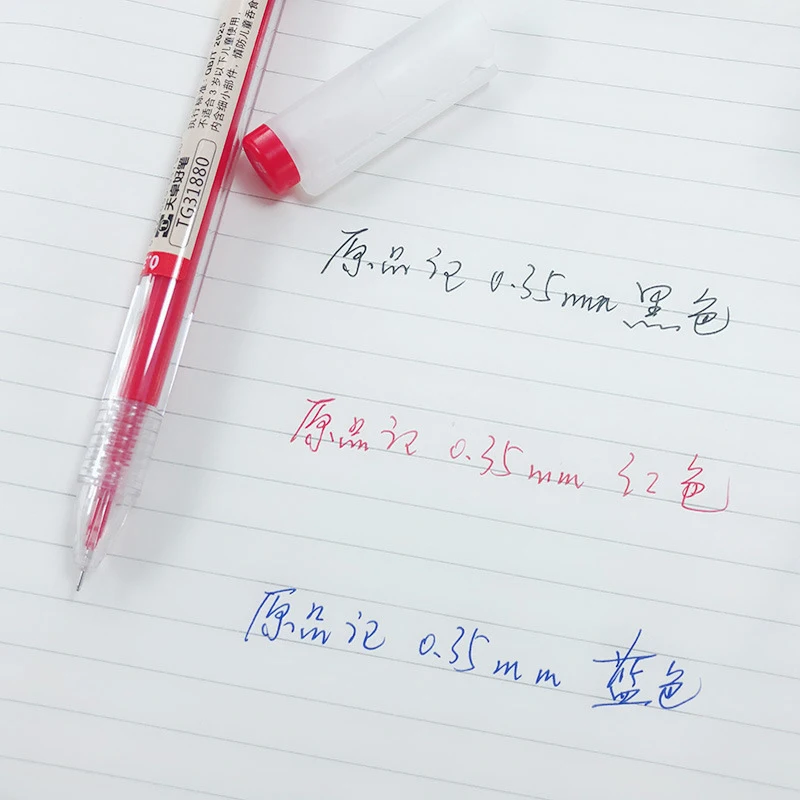 执行标准：QB/T 2625
不适合3岁以下儿童使用，
内含细小部件，慎防儿童吞食
天卓好笔
TG31880
原品记 0.35mm 黑色
原品记 0.35mm 红色
原品记 0.35mm 蓝色